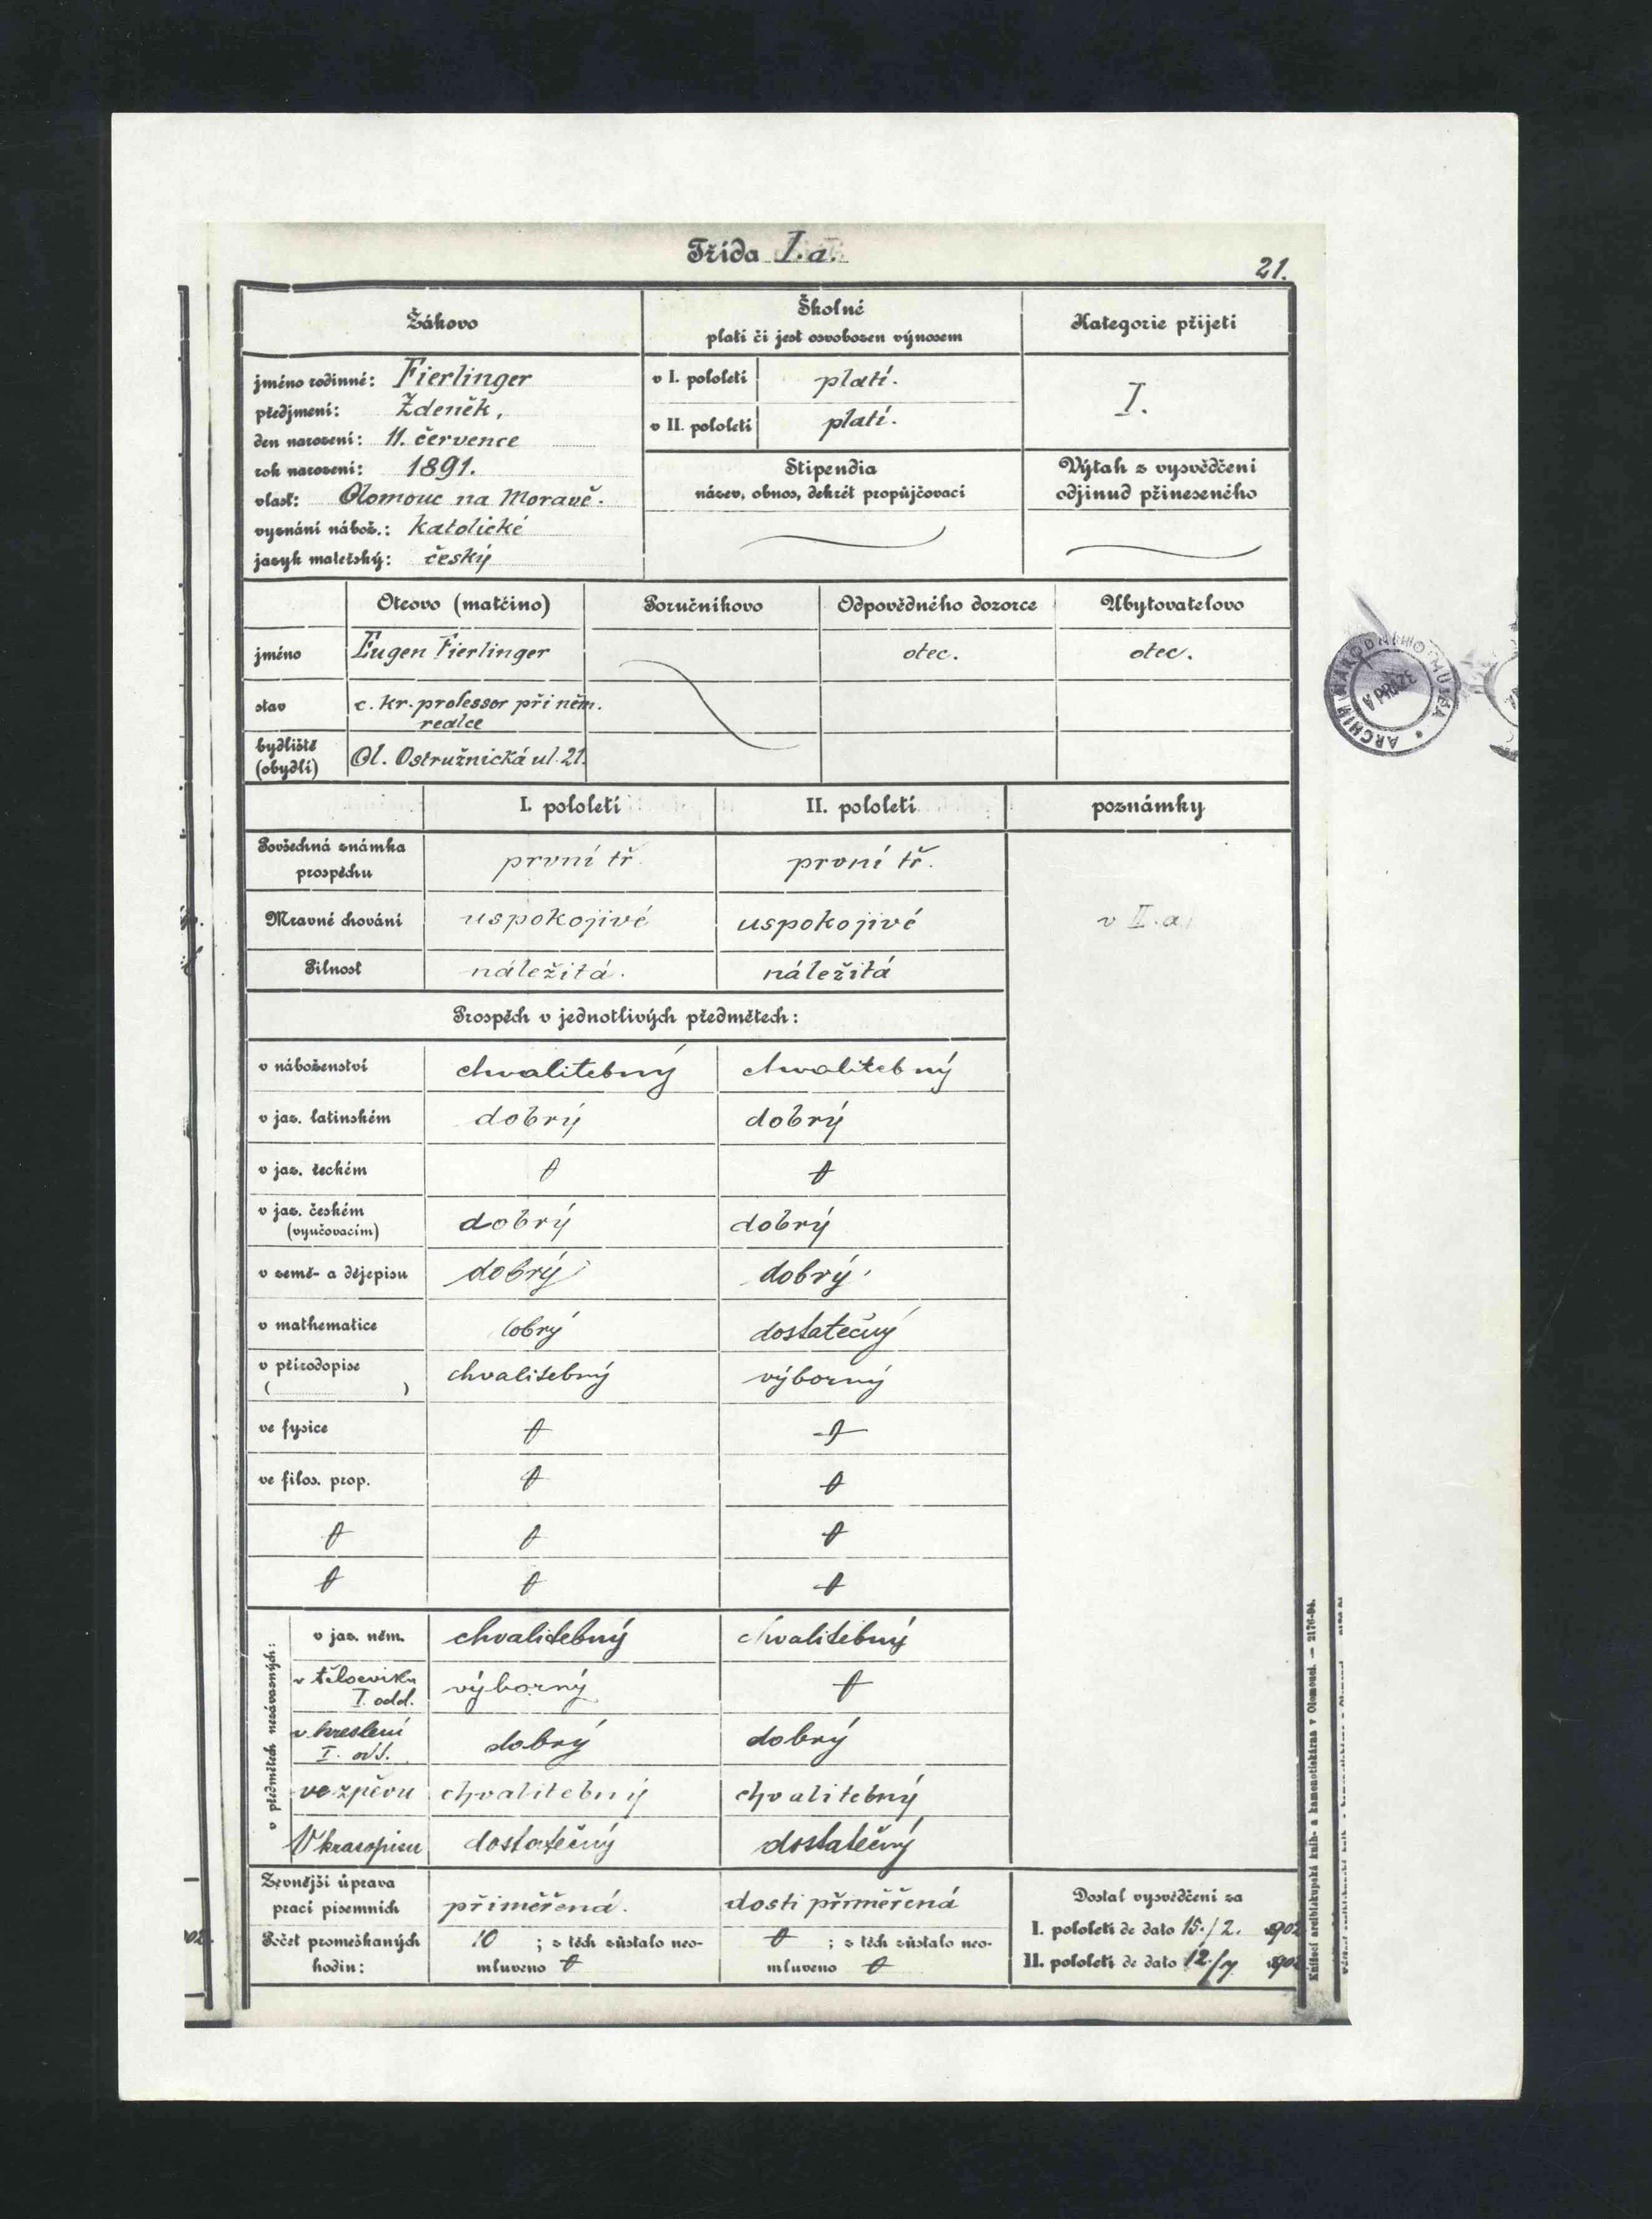 Třída I. a.
21.
Žákovo
Školné
platí či jest osvobozen výnosem
Kategorie přijetí
jméno rodinné: Fierlinger
předjmení: Zdeněk,
den narození: 11. července
rok narození: 1891.
vlasť: Olomouc na Moravě.
vyznání nábož.: katolické
jazyk mateřský: český
v I. pololetí platí.
v II. pololetí platí.
I.
Stipendia
název, obnos, dekrét propůjčovací
Výtah z vysvědčení
odjinud přineseného
Otcovo (matčino) Poručníkovo Odpovědného dozorce Ubytovatelovo
jméno Eugen Fierlinger otec. otec.
stav c. kr. professor při něm.
realce
bydliště
(obydlí) Ol. Ostružnická ul. 21.
ARCHIV NÁRODNÍHO MUSEA
V PRAZE
I. pololetí II. pololetí poznámky
Povšechná známka
prospěchu první tř. první tř.
Mravné chování uspokojivé uspokojivé v II. a)
Pilnost náležitá. náležitá
Prospěch v jednotlivých předmětech:
v náboženství chvalitebný chvalitebný
v jaz. latinském dobrý dobrý
v jaz. řeckém
v jaz. českém
(vyučovacím) dobrý dobrý
v země- a dějepisu dobrý dobrý
v mathematice dobrý dostatečný
v přírodopise
( ) chvalitebný výborný
ve fysice
ve filos. prop.
v předmětech nezávazných:
v jaz. něm. chvalitebný chvalitebný
v tělocviku
I. odd. výborný
v kreslení
I. odd. dobrý dobrý
ve zpěvu chvalitebný chvalitebný
V krasopisu dostatečný dostatečný
Zevnější úprava
prací písemních přiměřená. dosti přiměřená
Počet promeškaných
hodin: 10 ; z těch zůstalo neo-
mluveno
; z těch zůstalo neo-
mluveno
Dostal vysvědčení za
I. pololetí de dato 15./2. 902
II. pololetí de dato 12./7 902
Knížecí arcibiskupská knih- a kamenotiskárna v Olomouci. — 2176-94.